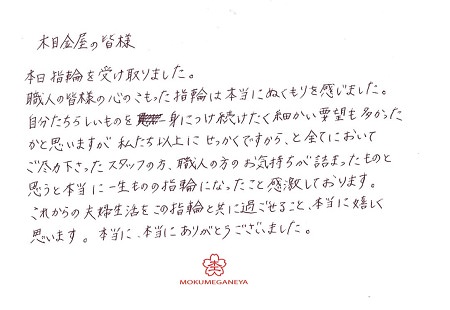 木目金屋の皆様
本日指輪を受け取りました。
職人の皆様の心のこもった指輪は本当にぬくもりを感じました。
自分たちらしいものを一身につけ続けたく細かい要望も多かった
かと思いますが私たち以上にせっかくですから、と全てにおいて
ご尽力下さったスタッフの方、職人の方のお気持ちが詰まったものと
思うと本当に一生ものの指輪になったこと感激しております。
これからの夫婦生活をこの指輪と共に過ごせること、本当に嬉しく
思います。本当に、本当にありがとうございました。
MOKUMEGANEYA